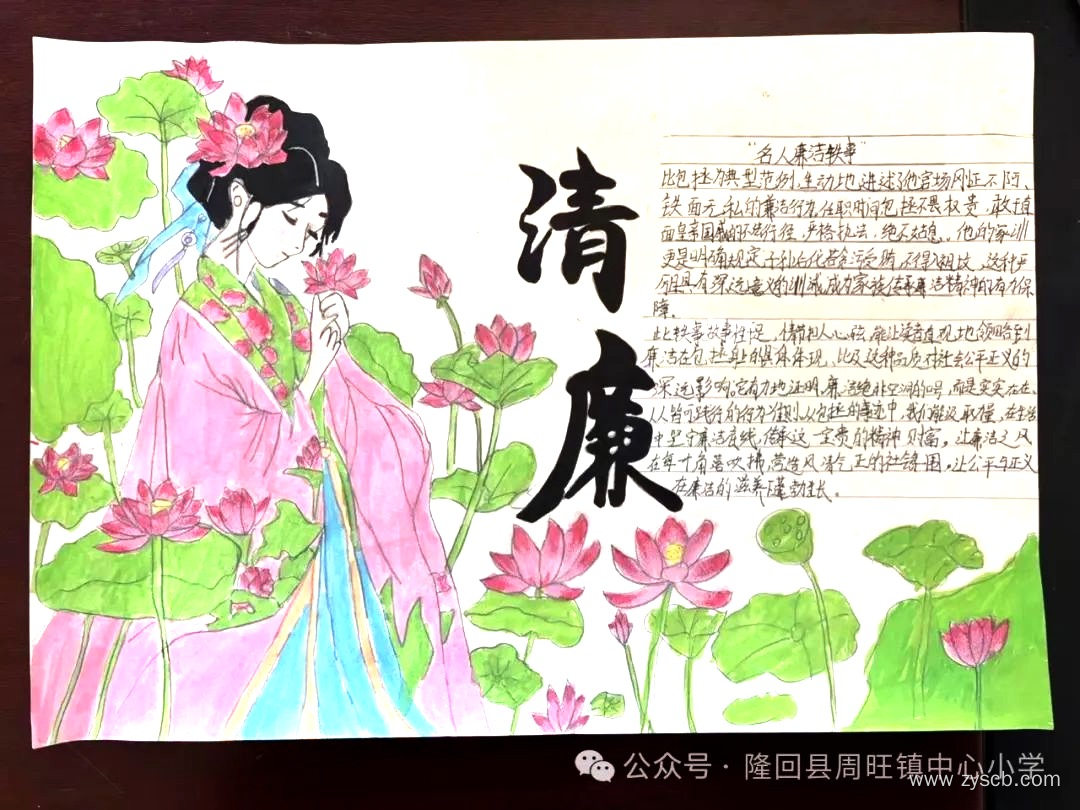 清廉
"名人廉洁轶事"
以包拯为典型范例,生动地讲述他官场刚正不阿、
铁面无私的廉洁行为,任职时间包拯不畏权贵,敢于直
面皇亲国戚的不法行径,严格执法,绝不姑息。他的家训
更是明确规定子孙后代若贪污受贿,不得入祖坟,这种严
厉且具有深远意义的训诫成为家族传承廉洁精神的有力保
障。
此轶事故事性足,情节扣人心弦,能让读者直观地领略到
廉洁在包拯身上的具体体现,以及这种品质对社会公平正义的
深远影响,它有力地证明,廉洁绝非空洞的口号,而是实实在在、
从包拯的事迹中,我们能汲取力量,在生活
中坚守廉洁底线,传承这一宝贵的精神财富。让廉洁之风
在每个角落吹拂,营造风清气正的社会氛围。让公平与正义
在廉洁的滋养下蓬勃生长。
公众号·隆回县周旺镇中心小学
www.zyscb.com